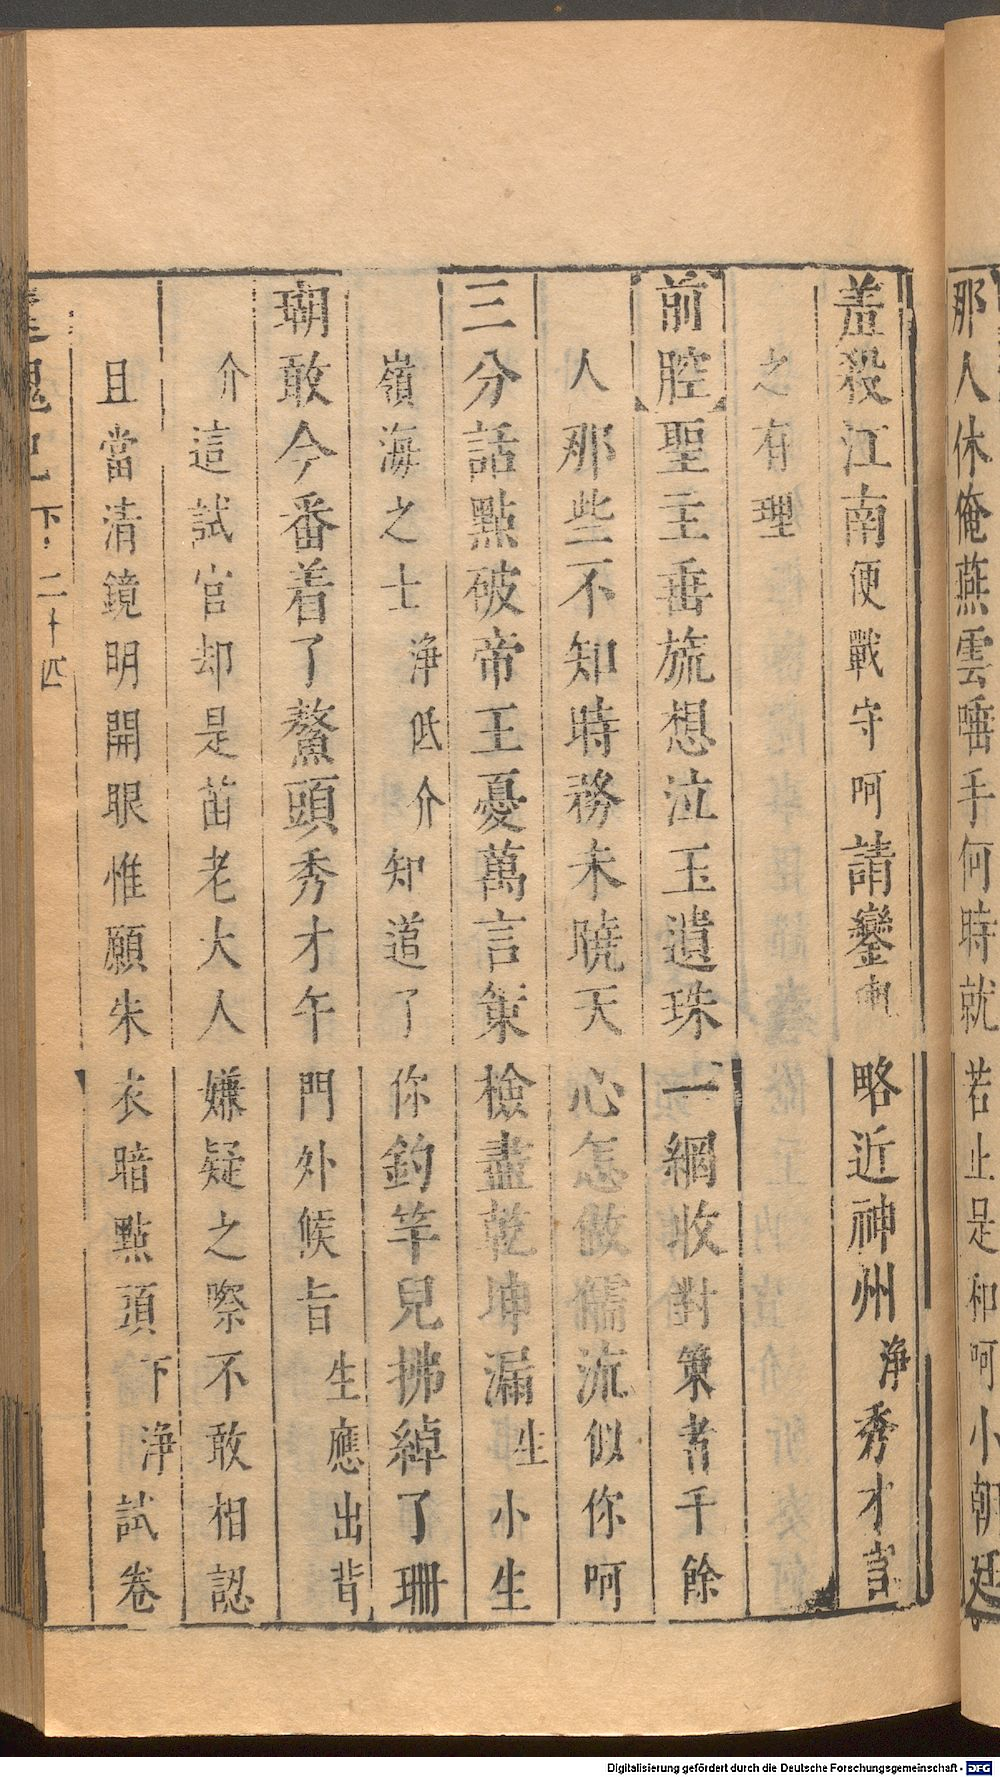 那人休俺燕雲唾手何時就若止是和呵小朝廷
羞殺江南便戰守呵請鑾輿略近神州淨秀才言
之有理
前腔聖主垂旒想泣玉遺珠一網收對策者千餘
人那些不知時務未曉天心怎做儒流似你呵
三分話點破帝王憂萬言策檢盡乾坤漏生小生
嶺海之士淨低介知道了你釣竿兒拂綽了珊
瑚敢今番着了鰲頭秀才午門外候旨生應出背
介這試官却是苗老大人嫌疑之際不敢相認
且當清鏡明開眼惟願朱衣暗點頭下淨試卷
還魂記 下 二十四
Digitalisierung gefördert durch die Deutsche Forschungsgemeinschaft - DFG